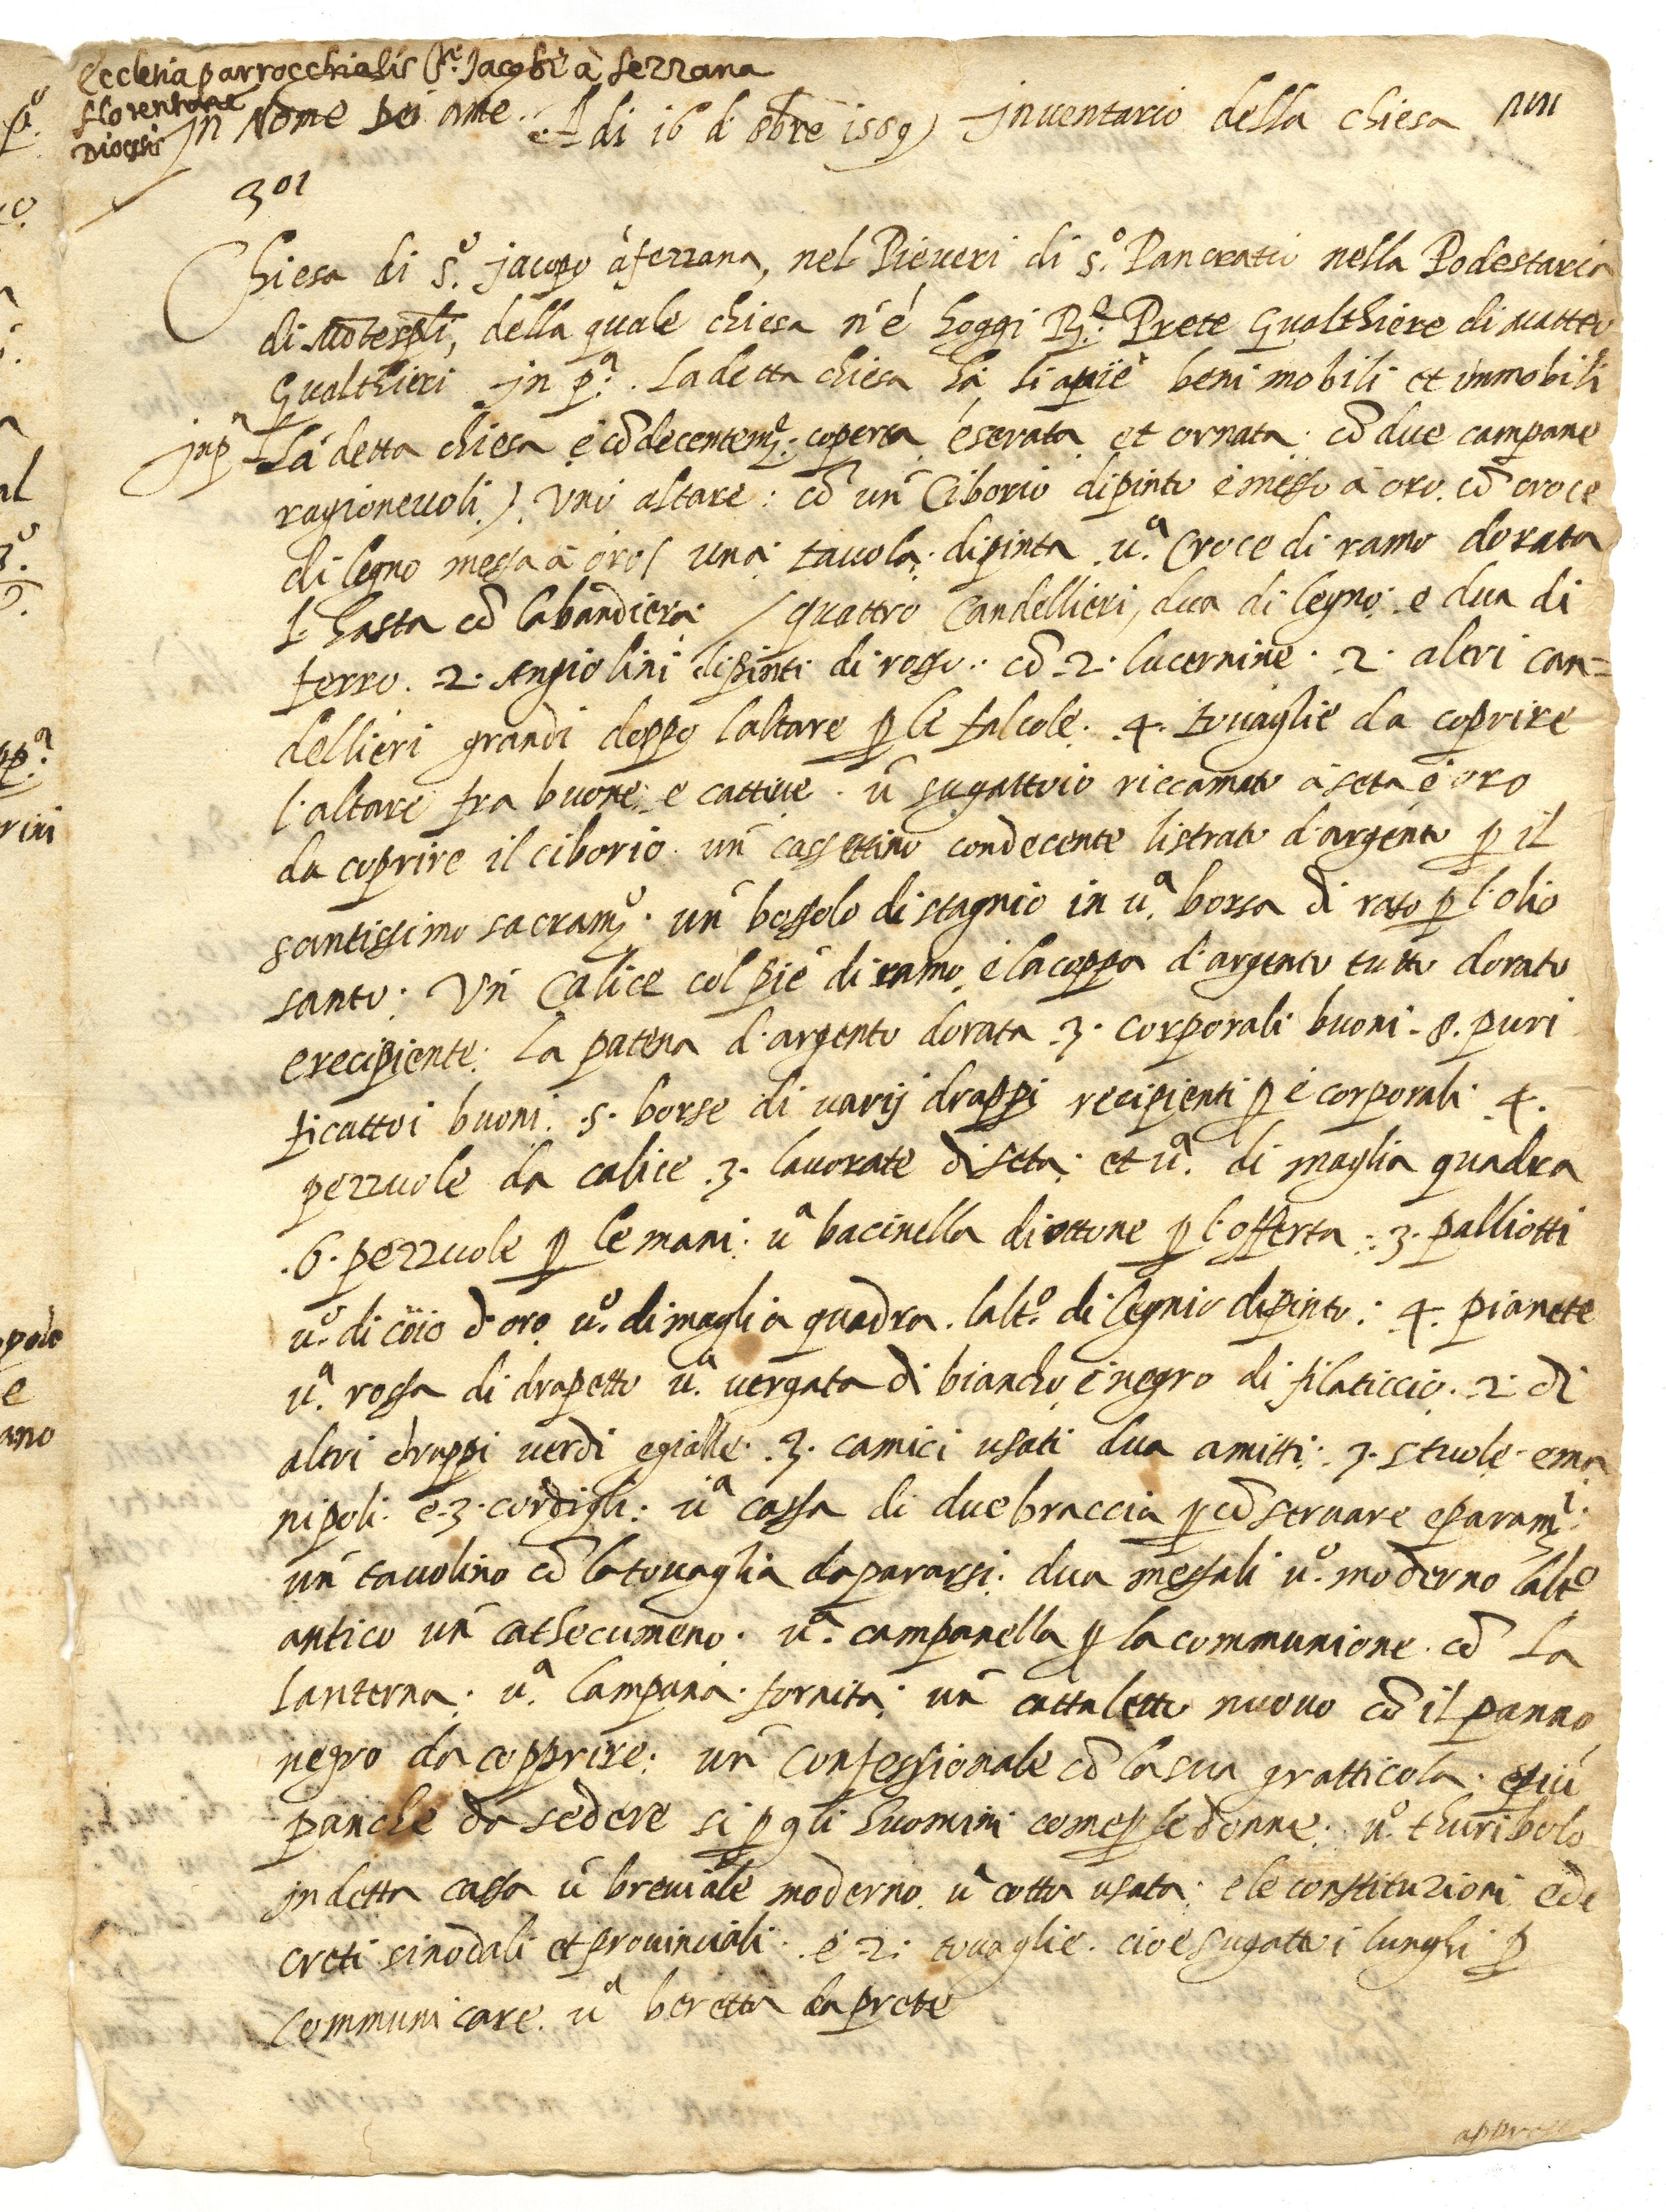 Ecclesia parrocchialis S.ti Jacobi à Ferrana
florentinae
Diocesis
Jn Nome Dei ame. A di 16 d' 8bre 1589 Jnventario della chiesa
301
Chiesa di S.o Jacopo à ferrana, nel Pieveri di S.o Pancratio nella Podestaria
di Mōtespli, della quale chiesa n'é hoggi Rj.e Prete Gualthiere di Matteo
Gualthieri Jn p.a. La detta chiesa hà li apiè beni mobili et immobili
Jnp.a La detta chiesa é cōdecentem.e coperta é serata et ornata. cō due campane
ragionevoli). Uno altare: cō un Ciborio dipinto é messo à oro. cō croce
di legno messa à oro/ una tavola dipinta u.a Croce di ramo dorata
l. hasta cō la bandiera / quattro Candellieri, dua di legno: e dua di
ferro. 2. Angiolini dipinti di rosso.. cō 2. lucernine. 2. altri can=
dellieri grandi doppo laltare p le falcole. 4. tovaglie da coprire
l'altare fra buone e cattive. ū sugattoio riccamato à seta é oro
da coprire il ciborio. un cassettino condecente listrato d'argento p il
santissimo sacram.o. un bossolo di stagnio in u.a borsa di raso p l'olio
santo: Un Calice col piè di ramo, é la coppa d'argento tutto dorato
e recipiente: La patena d'argento dorata 3. corporali buoni. 8. puri
ficattoi buoni. .5. borse di varij drappi recipienti p é corporali 4.
pezzuole da calice .3. lavorate di seta: et u.a di maglia quadra
.6. pezzuole p le mani: u.a bacinella di ottone p l'offerta: 3. palliotti
u.o di coio d'oro u.o di maglia quadra. lalt.o di legnio dipinto: 4. pianete
u.a rossa di drapetto u.a vergata di biancho é negro di filaticcio. 2. di
altri drappi verdi e gialle. .3. camici usati dua amitti: 3. stuole e ma
nipoli. e 3. cordigli: u.a cassa di due braccia p cōservare e param.i:
un tavolino cō la tovaglia da pararsi: dua messali u.o moderno lalt.o
antico un cathecumeno. u.a campanella p la communione. cō la
lanterna: u.a lampana fornita: un cattaletto nuovo cō il panno
negro da copprire: un confessionale cō la sua gratticola. e più
panche da sedere si p gli huomini come p le donne: u.o thuribolo
in detta cassa ū breviale moderno. u.a cotta usata: e le constituzioni e de
creti sinodali et provinciali. é 2. tovaglie. cioe sugattoi lunghi p
communicare. u.a beretta da prete